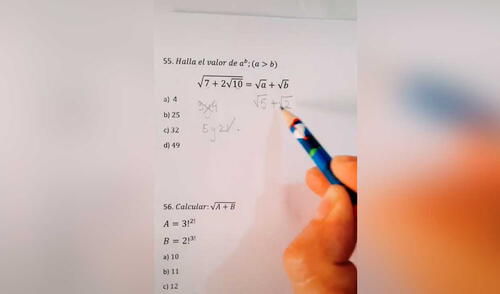 55. Halla el valor de aᵇ; (a > b)
√(7 + 2√10) = √a + √b
√5 + √2
a) 4
b) 25
5 y 2 ✓.
c) 32
d) 49
56. Calcular: √(A + B)
A = 3!²!
B = 2!³!
a) 10
b) 11
c) 12